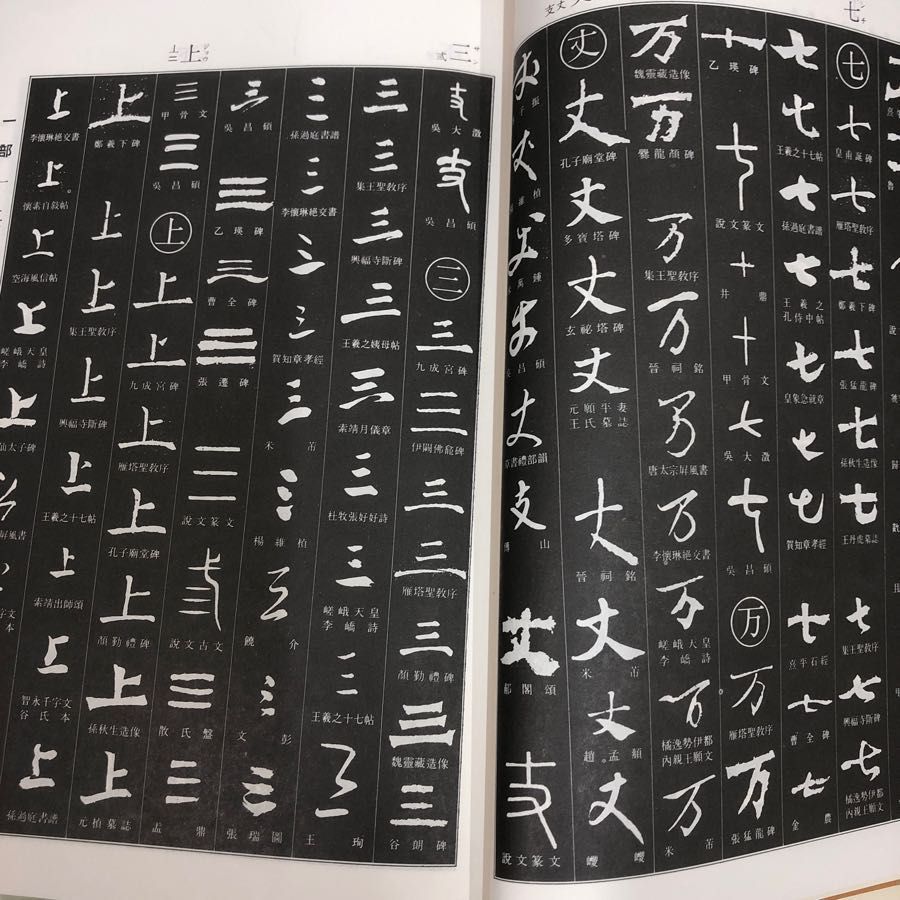 七
七
七
皇甫誕碑
七
雁塔聖教序
七
鄭羲下碑
七
張猛龍碑
七
孫秋生造像
七
王丹虎墓誌
七
集王聖教序
七
興福寺斷碑
七
橘逸勢伊都
内親王願文
七
王羲之十七帖
七
孫過庭書譜
七
王羲之
孔侍中帖
七
皇象急就章
七
七
賀知章孝經
七
熹平石經
七
曹全碑
七
金農
七
乙瑛碑
七
說文篆文
七
井鼎
七
甲骨文
七
吳大澂
七
吳昌碩
万
万
雁塔聖教序
万
張猛龍碑
万
魏靈藏造像
万
爨龍顏碑
万
集王聖教序
万
晉祠銘
万
唐太宗屏風書
万
李懷琳絕交書
万
嵯峨天皇
李嶠詩
万
橘逸勢伊都
内親王願文
万
米芾
丈
丈
孔子廟堂碑
丈
多寶塔碑
丈
玄祕塔碑
丈
元願平妻
王氏墓誌
丈
晉祠銘
丈
米芾
丈
趙孟頫
丈
巙巙
丈
丈
丈
丈
吳昌碩
丈
草書禮部韻
支
傅山
丈
郙閣頌
支
說文篆文
三
弐
上
丄二
支
吳大澂
支
吳昌碩
三
三
九成宮碑
三
伊闕佛龕碑
三
三
雁塔聖教序
三
顏勤禮碑
三
魏靈藏造像
三
谷朗碑
三
三
集王聖教序
三
興福寺斷碑
三
王羲之姨母帖
三
索靖月儀章
三
杜牧張好好詩
三
嵯峨天皇
李嶠詩
三
王羲之十七帖
三
王珣
三
孫過庭書譜
三
李懷琳絕交書
三
三
賀知章孝經
三
米芾
三
楊維楨
三
饒介
三
文彭
三
張瑞圖
三
吳昌碩
三
乙瑛碑
三
曹全碑
三
張遷碑
三
說文篆文
弎
說文古文
三
散氏盤
三
盂鼎
三
甲骨文
三
吳昌碩
上
上
上
九成宮碑
上
雁塔聖教序
上
孔子廟堂碑
上
顏勤禮碑
上
孫秋生造像
上
元楨墓誌
上
鄭羲下碑
上
上
集王聖教序
上
興福寺斷碑
上
王羲之十七帖
上
索靖出師頌
上
智永千字文
谷氏本
上
孫過庭書譜
上
李懷琳絕交書
上
懷素自敍帖
上
空海風信帖
上
嵯峨天皇
李嶠詩
上
仙太子碑
上
屏風書
一
部